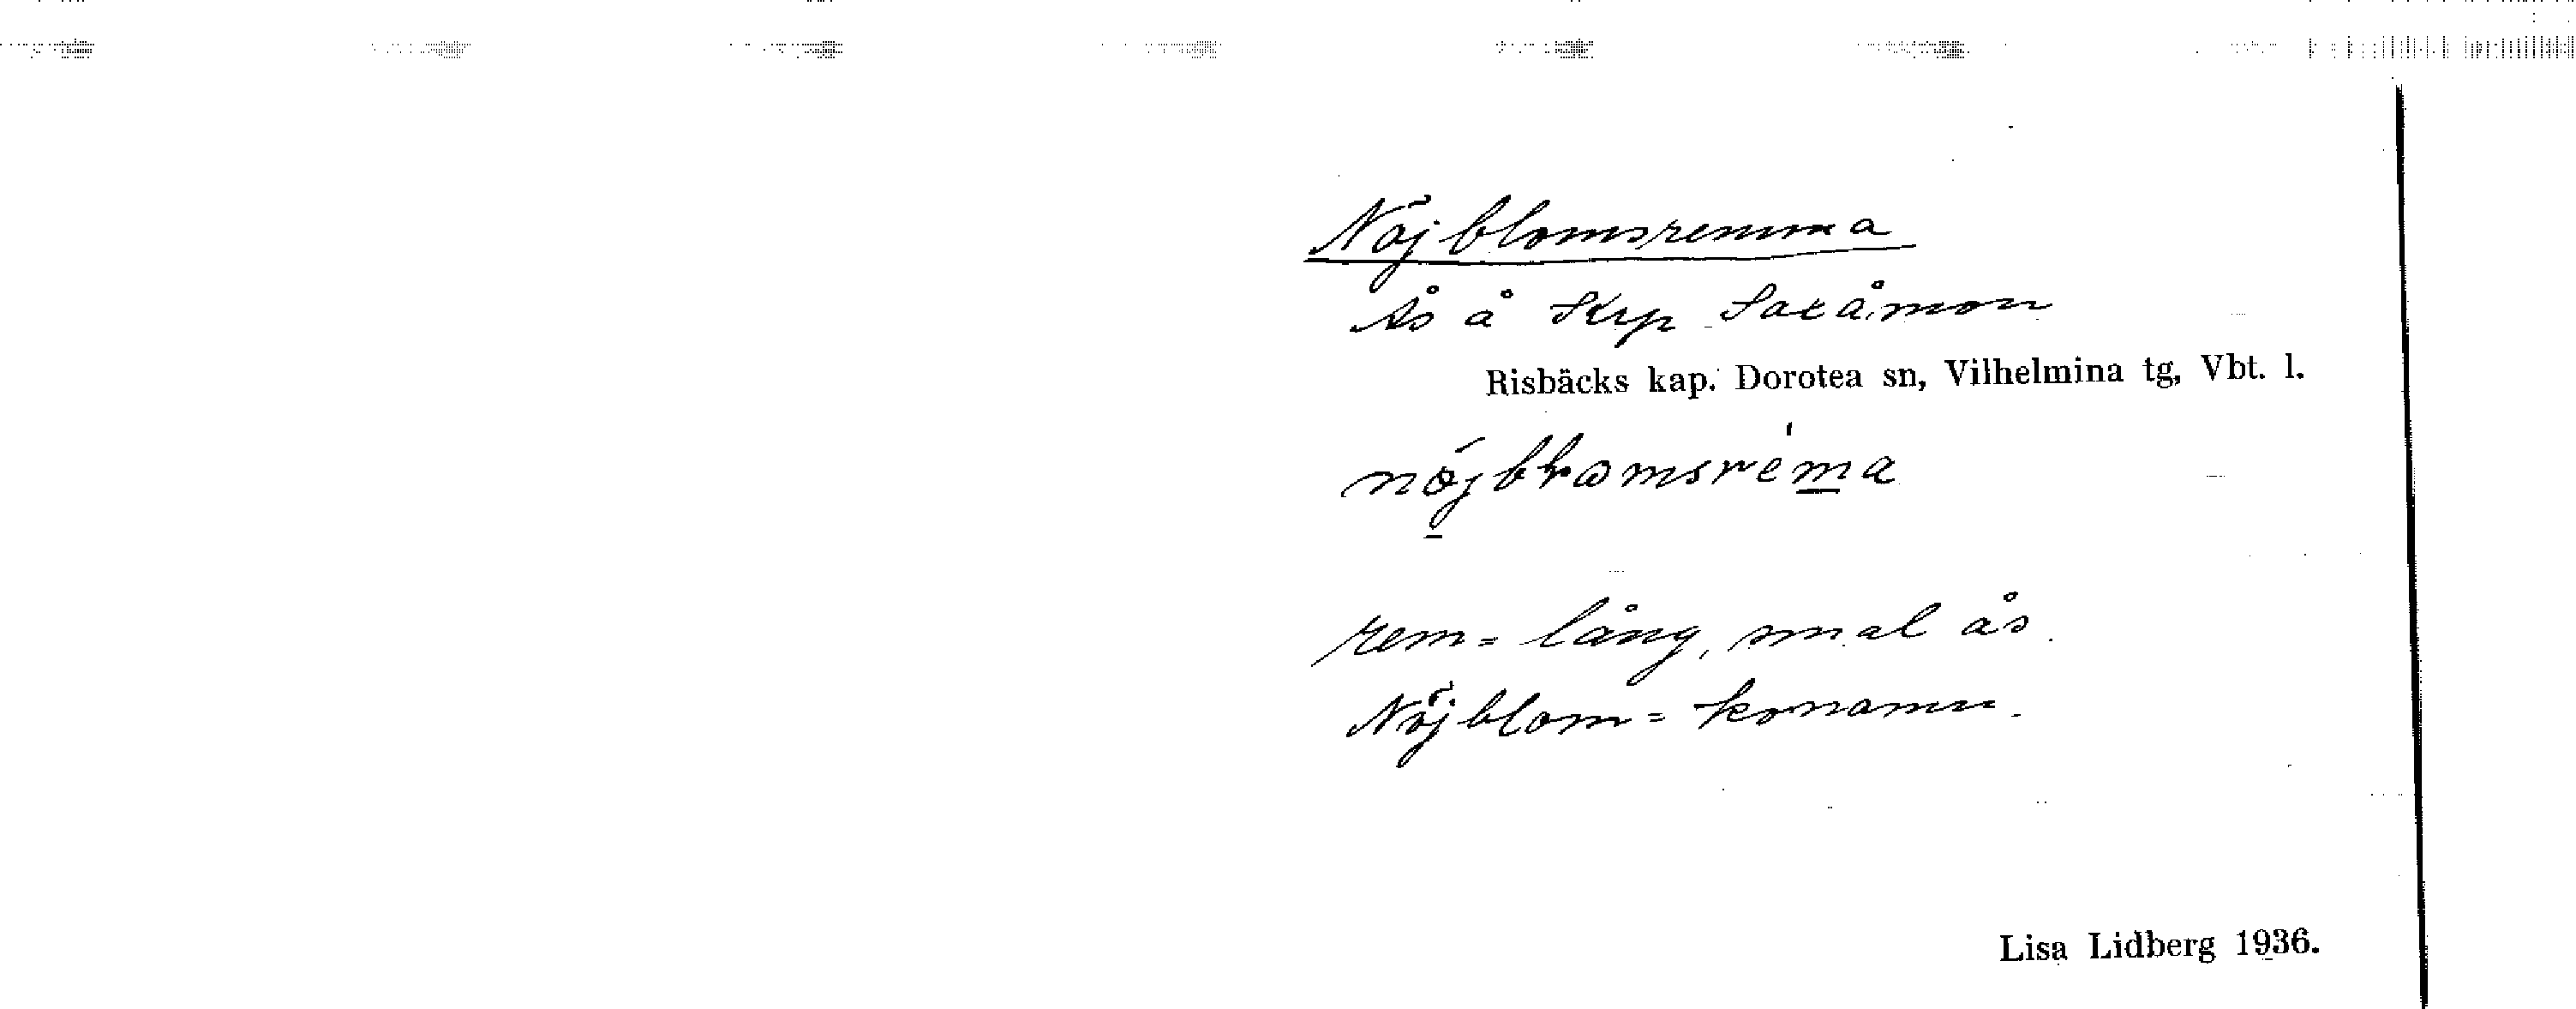 Nöjblomsremma
Ås å Krp Saxåmon
Risbäcks kap. Dorotea sn, Vilhelmina tg, Vbt. l.
rem = lång, smal ås.
Nöjblom = konamn.
Lisa Lidberg 1936.